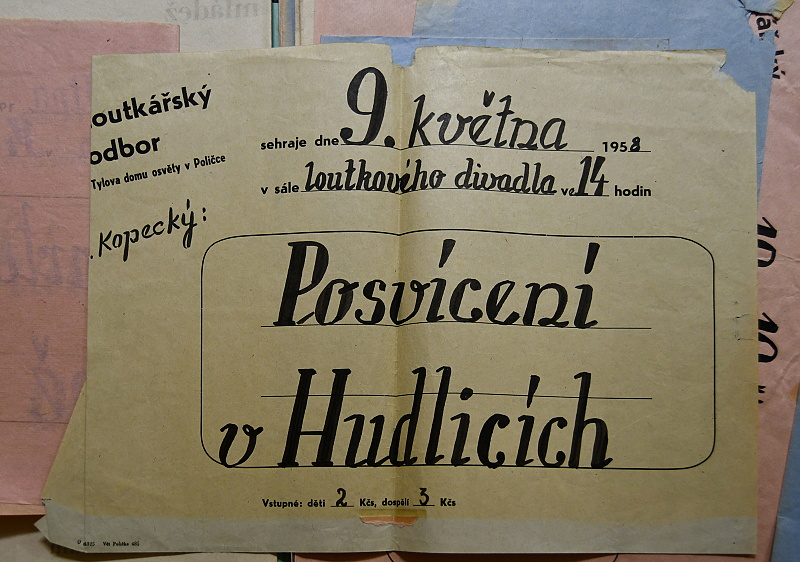 mládež
loutkářský
odbor
Tylova domu osvěty v Poličce
. Kopecký:
sehraje dne 9. května 1958
v sále loutkového divadla ve 14 hodin
Posvícení
v Hudlicích
Vstupné: děti 2 Kčs, dospělí 3 Kčs
10
10